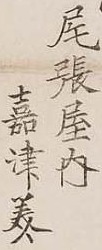 尾張屋内
嘉津美